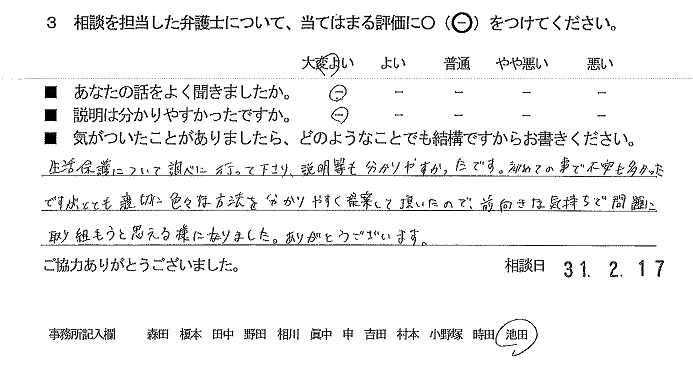 3 相談を担当した弁護士について、当てはまる評価に〇（⊖）をつけてください。
大変よい よい 普通 やや悪い 悪い
■ あなたの話をよく聞きましたか。 － － － － －
■ 説明は分かりやすかったですか。 － － － － －
■ 気がついたことがありましたら、どのようなことでも結構ですからお書きください。
生活保護について調べに行って下さり、説明等も分かりやすかったです。初めての事で不安も多かった
ですがとても適切に色々な方法を分かりやすく提案して頂いたので、前向きな気持ちで問題に
取り組もうと思える様になりました。ありがとうございます。
ご協力ありがとうございました。 相談日 31. 2. 17
事務所記入欄 森田 榎本 田中 野田 相川 眞中 申 吉田 村本 小野塚 時田 池田